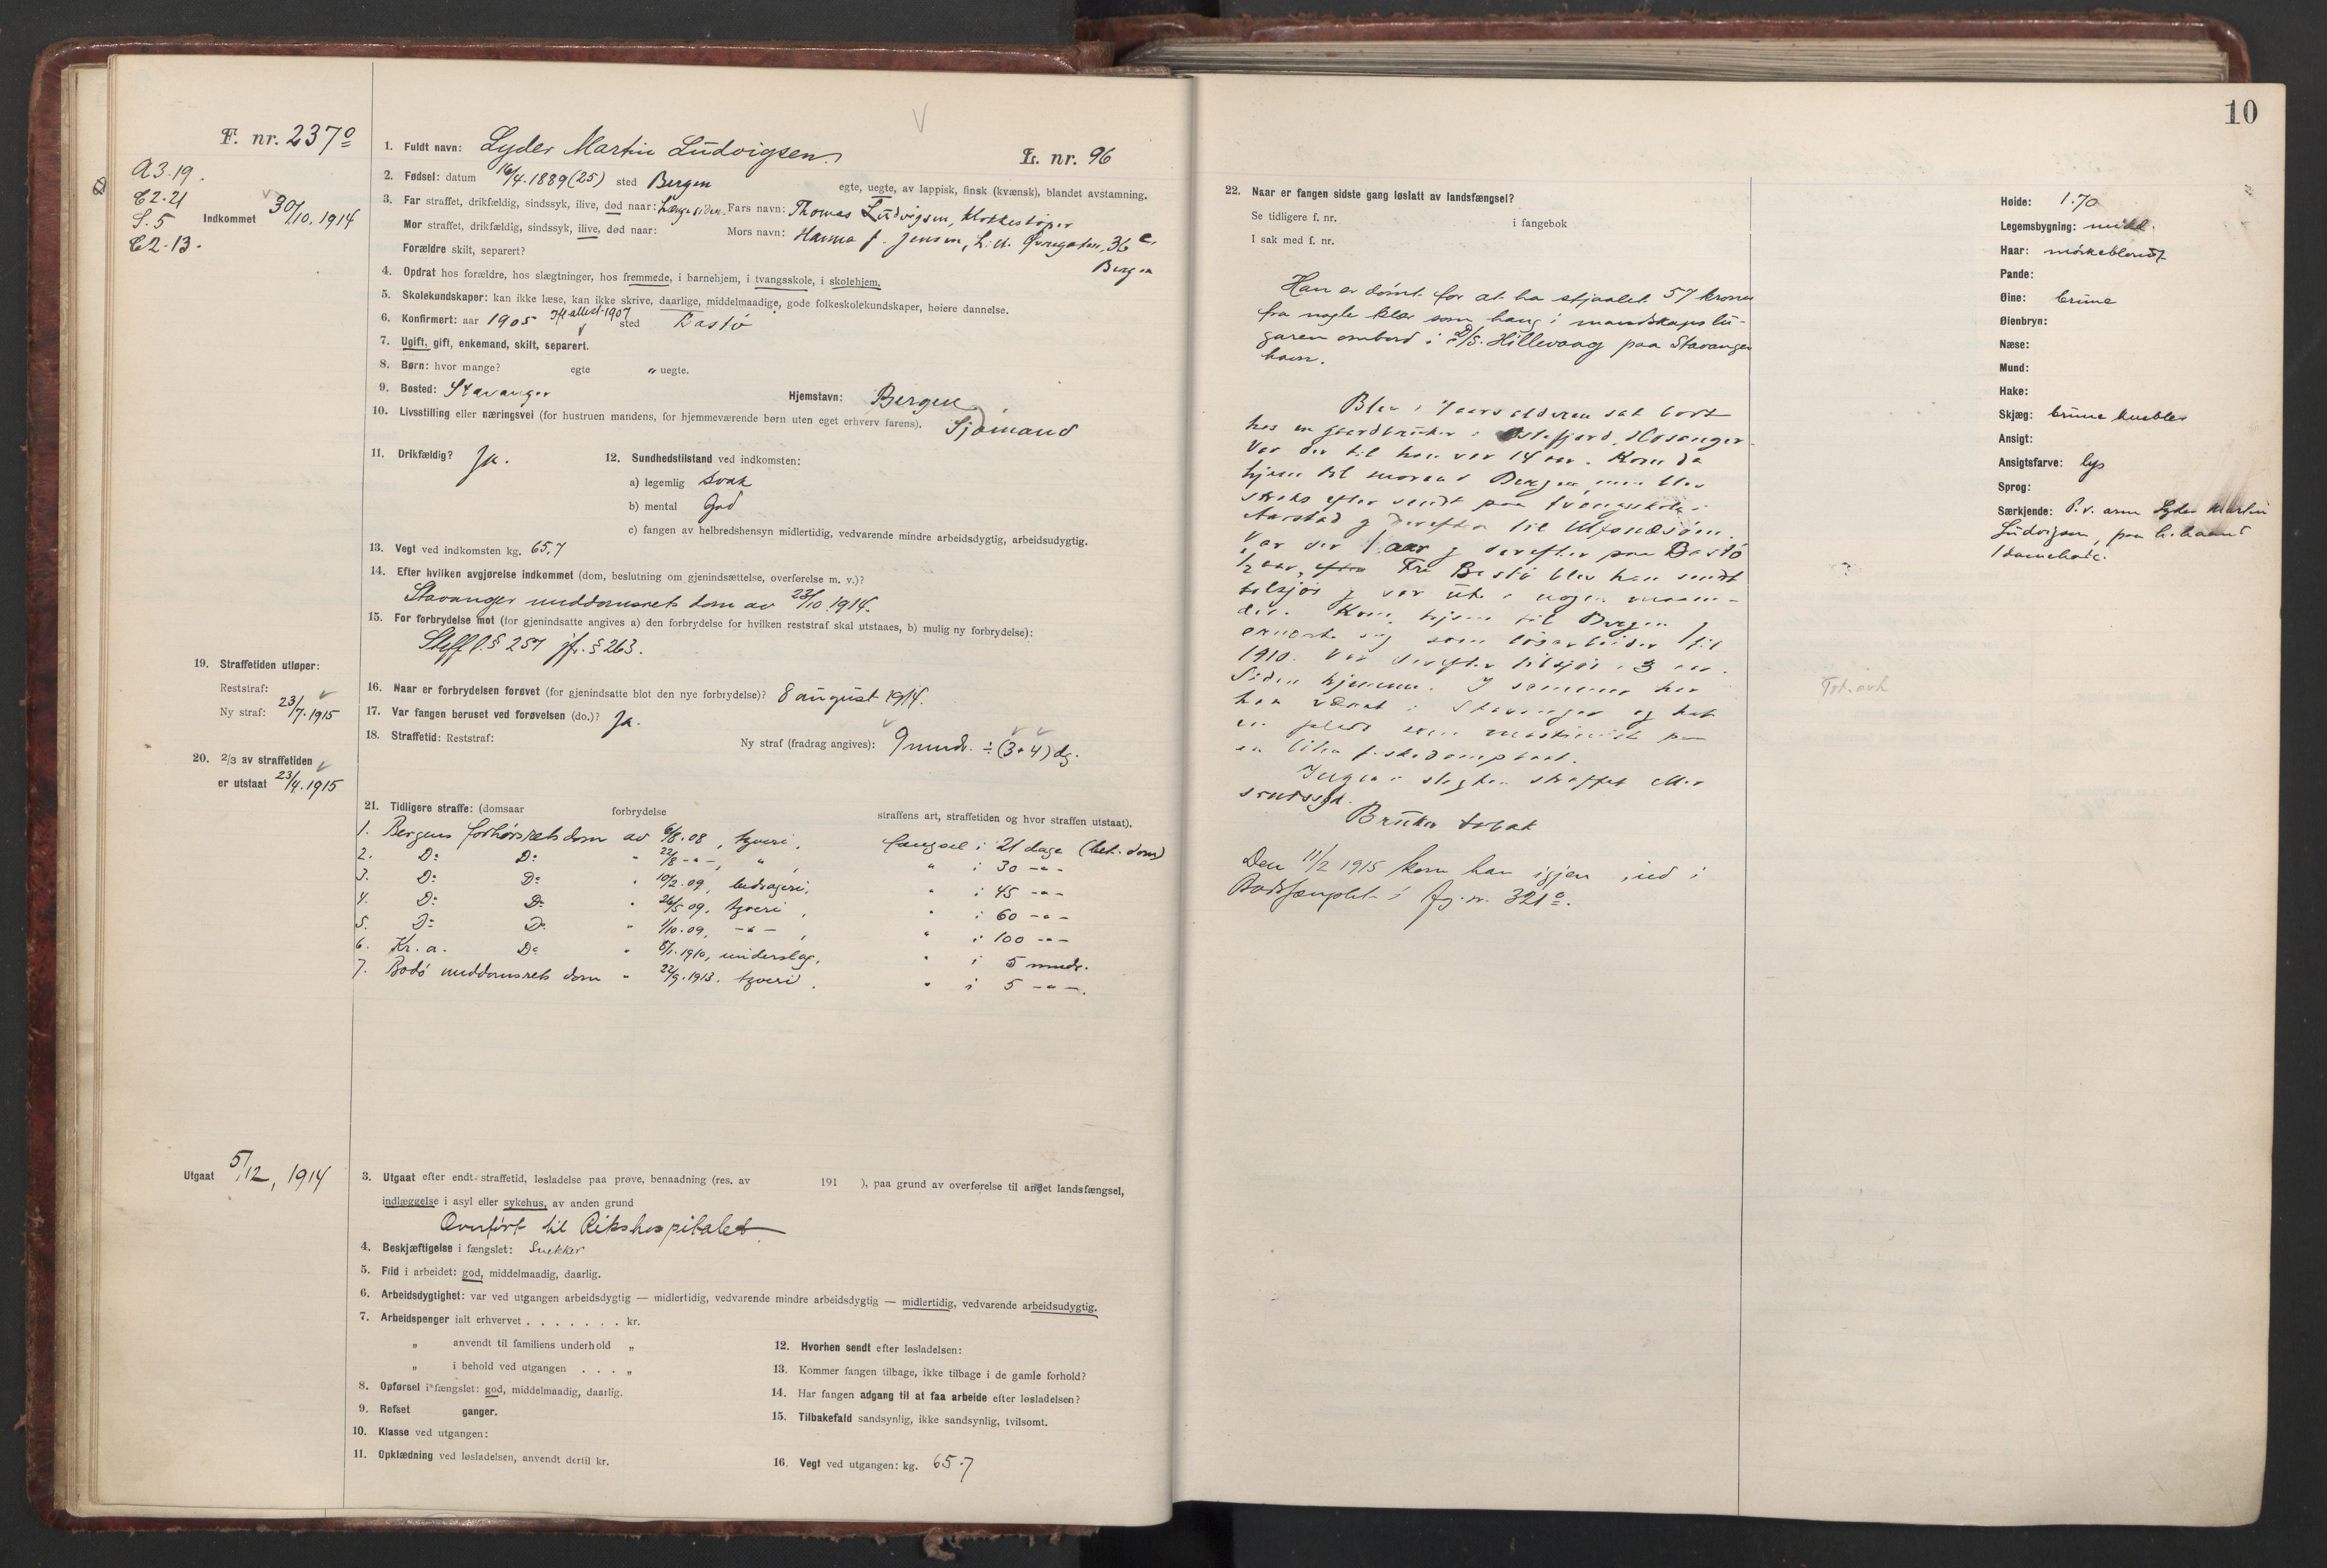 10
F. nr. 237º
A 3.19.
C2.21
S. 5
C2.13.
Indkommet 30/10.1914
1. Fuldt navn: Lyder Martin Ludvigsen.
L. nr. 96
2. Fødsel: datum 16/4.1889 (25) sted Bergen
egte, uegte, av lappisk, finsk (kvænsk), blandet avstamning.
3. Far straffet, drikfældig, sindssyk, ilive, død naar: Længe siden Fars navn: Thomas Ludvigsen,
Mor straffet, drikfældig, sindssyk, ilive, død naar: Mors navn: Hanna f. Jensen, L. Øvregaten, 36
Bergen
Forældre skilt, separert?
4. Opdrat hos forældre, hos slægtninger, hos fremmede, i barnehjem, i tvangsskole, i skolehjem.
5. Skolekundskaper: kan ikke læse, kan ikke skrive, daarlige, middelmaadige, gode folkeskolekundskaper, høiere dannelse.
6. Konfirmert: aar 1905 Ifl. attest 1907 sted Bastö
7. Ugift, gift, enkemand, skilt, separert.
8. Børn: hvor mange? egte „ uegte.
9. Bosted: Stavanger Hjemstavn: Bergen
10. Livsstilling eller næringsvei (for hustruen mandens, for hjemmeværende børn uten eget erhverv farens). Sjömand
11. Drikfældig? Ja.
12. Sundhedstilstand ved indkomsten:
a) legemlig svak
b) mental God
c) fangen av helbredshensyn midlertidig, vedvarende mindre arbeidsdygtig, arbeidsudygtig.
13. Vegt ved indkomsten kg. 65.7
14. Efter hvilken avgjørelse indkommet (dom, beslutning om gjenindsættelse, overførelse m. v.)?
Stavanger meddomsrets dom av 23/10.1914.
15. For forbrydelse mot (for gjenindsatte angives a) den forbrydelse for hvilken reststraf skal utstaaes, b) mulig ny forbrydelse):
Strffl. § 257 jfr. § 263.
19. Straffetiden utløper:
Reststraf:
Ny straf: 23/7.1915
16. Naar er forbrydelsen forøvet (for gjenindsatte blot den nye forbrydelse)? 8 august 1914.
17. Var fangen beruset ved forøvelsen (do.)? Ja.
18. Straffetid: Reststraf: Ny straf (fradrag angives): 9 mndr. ÷ (3+4) dg.
20. 2/3 av straffetiden
er utstaat 23/4.1915
21. Tidligere straffe: (domsaar forbrydelse straffens art, straffetiden og hvor straffen utstaat).
1. Bergens forhörsrets dom av 6/8.08, tyveri, fængsel i 21 dage (bet. dom)
2. Do Do " 22/8 -"-, " , " i 30 -"-
3. Do Do " 10/2.09, bedrageri, " i 45 -"-
4. Do Do " 26/5 09, tyveri, " i 60 -"-
5. Do Do " 1/10.09, -"-, " i 100 -"-
6. Kr.a. Do " 8/1.1910, underslag, " i 5 mndr.
7. Bodö meddomsrets dom " 22/9.1913. tyveri, " i 5 -"-.
Utgaat 5/12, 1914
3. Utgaat efter endt straffetid, løsladelse paa prøve, benaadning (res. av 191 ), paa grund av overførelse til andet landsfængsel,
indlæggelse i asyl eller sykehus, av anden grund
Overfört til Rikshospitalet.
4. Beskjæftigelse i fængslet: Snekker
5. Flid i arbeidet: god, middelmaadig, daarlig.
6. Arbeidsdygtighet: var ved utgangen arbeidsdygtig — midlertidig, vedvarende mindre arbeidsdygtig — midlertidig, vedvarende arbeidsudygtig.
7. Arbeidspenger ialt erhvervet . . . . . . . kr.
„ anvendt til familiens underhold „
„ i behold ved utgangen . . . „
8. Opførsel i fængslet: god, middelmaadig, daarlig.
9. Refset ganger.
10. Klasse ved utgangen:
11. Opklædning ved løsladelsen, anvendt dertil kr.
12. Hvorhen sendt efter løsladelsen:
13. Kommer fangen tilbage, ikke tilbage i de gamle forhold?
14. Har fangen adgang til at faa arbeide efter løsladelsen?
15. Tilbakefald sandsynlig, ikke sandsynlig, tvilsomt.
16. Vegt ved utgangen: kg. 65.7
22. Naar er fangen sidste gang løslatt av landsfængsel?
Se tidligere f. nr. i fangebok
I sak med f. nr.
Han er dömt for at ha stjaalet 57 kroner
fra nogle klær som hang i mandskapslu-
garen ombord i D/S. Hillevaag paa Stavanger
havn.
Blev i 7 aars alderen sat bort
hos en gaardbruker i Ostefjord, Hosanger.
Var der til han var 14 aar. Kom da
hjem til moren i Bergen, men blev
straks efter sendt paa tvangsskole i
Aarstad og derefter til Ulfsnæsöen.
Var der 1 aar og derefter paa Bastö
1/2 aar, Fra Bastö blev han sendt
tilsjös og var ute i nogen maane-
der. Kom hjem til Bergen og
ernærte sig som lösarbeider til
1910. Var derefter tilsjös i 3 aar.
Siden hjemme. I sommer har
han været i Stavanger og hat
en plads som maskinist paa
en liten fiskedampbaat.
Ingen i slegten straffet eller
sindssyk.
Bruker tobak
Den 11/2 1915 kom han igjen ind i
Botsfængslet i fg. nr. 321º.
Høide: 1.70
Legemsbygning: midd.
Haar: mörkeblondt
Pande:
Øine: brune
Øienbryn:
Næse:
Mund:
Hake:
Skjæg: brune knebler
Ansigt:
Ansigtsfarve: lys
Sprog:
Særkjende: P. v. arm Lyder Martin
Ludvigsen, paa h. haand
1 damehode.